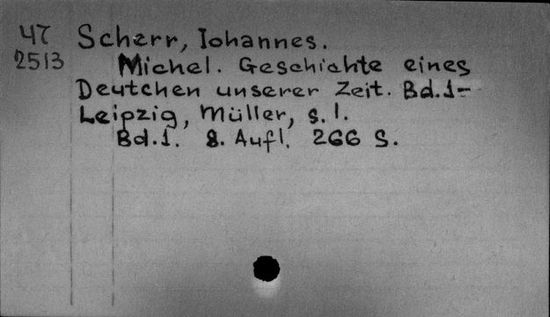 47 Scherr, Iohannes.
2513 Michel. Geschichte eines
Deutchen unserer Zeit. Bd.1-
Leipzig, Müller, s. l.
Bd.1. 8. Aufl. 266 S.